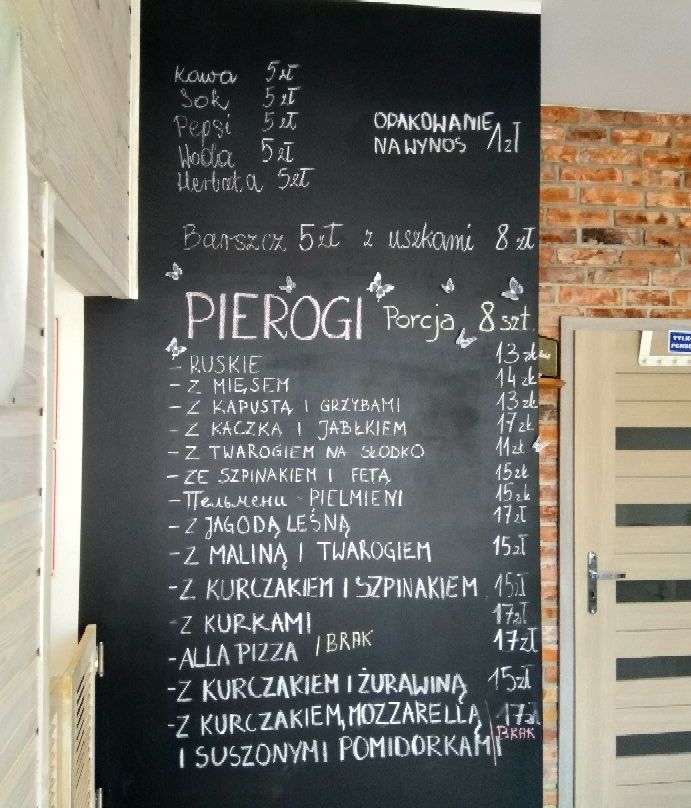 Kawa 5 zł
Sok 5 zł
Pepsi 5 zł
Woda 5 zł
Herbata 5 zł
OPAKOWANIE
NA WYNOS 1 zł
Barszcz 5 zł z uszkami 8 zł
PIEROGI Porcja 8 szt.
- RUSKIE 13 zł
- Z MIĘSEM 14 zł
- Z KAPUSTĄ I GRZYBAMI 13 zł
- Z KACZKĄ I JABŁKIEM 17 zł
- Z TWAROGIEM NA SŁODKO 11 zł
- ZE SZPINAKIEM I FETĄ 15 zł
- Пельмени - PIELMIENI 15 zł
- Z JAGODĄ LEŚNĄ 17 zł
- Z MALINĄ I TWAROGIEM 15 zł
- Z KURCZAKIEM I SZPINAKIEM 15 zł
- Z KURKAMI 17 zł
- ALLA PIZZA / BRAK 17 zł
- Z KURCZAKIEM I ŻURAWINĄ 15 zł
- Z KURCZAKIEM, MOZZARELLĄ 17 zł
I SUSZONYMI POMIDORKAMI BRAK
TYLKO